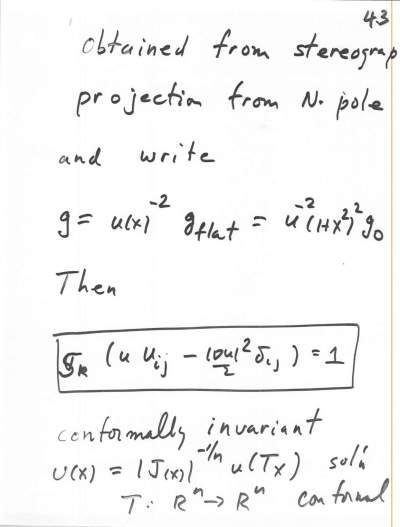 43
obtained from stereograp
projection from N. pole
and write
g = u(x)^{-2} g_{flat} = u^{-2}(1+x^2)^2 g_0
Then
σ_k (u u_{ij} - |Du|^2/2 δ_{ij}) = 1
conformally invariant
v(x) = |J(x)|^{-1/n} u(Tx) sol'n
T: R^n → R^n conformal